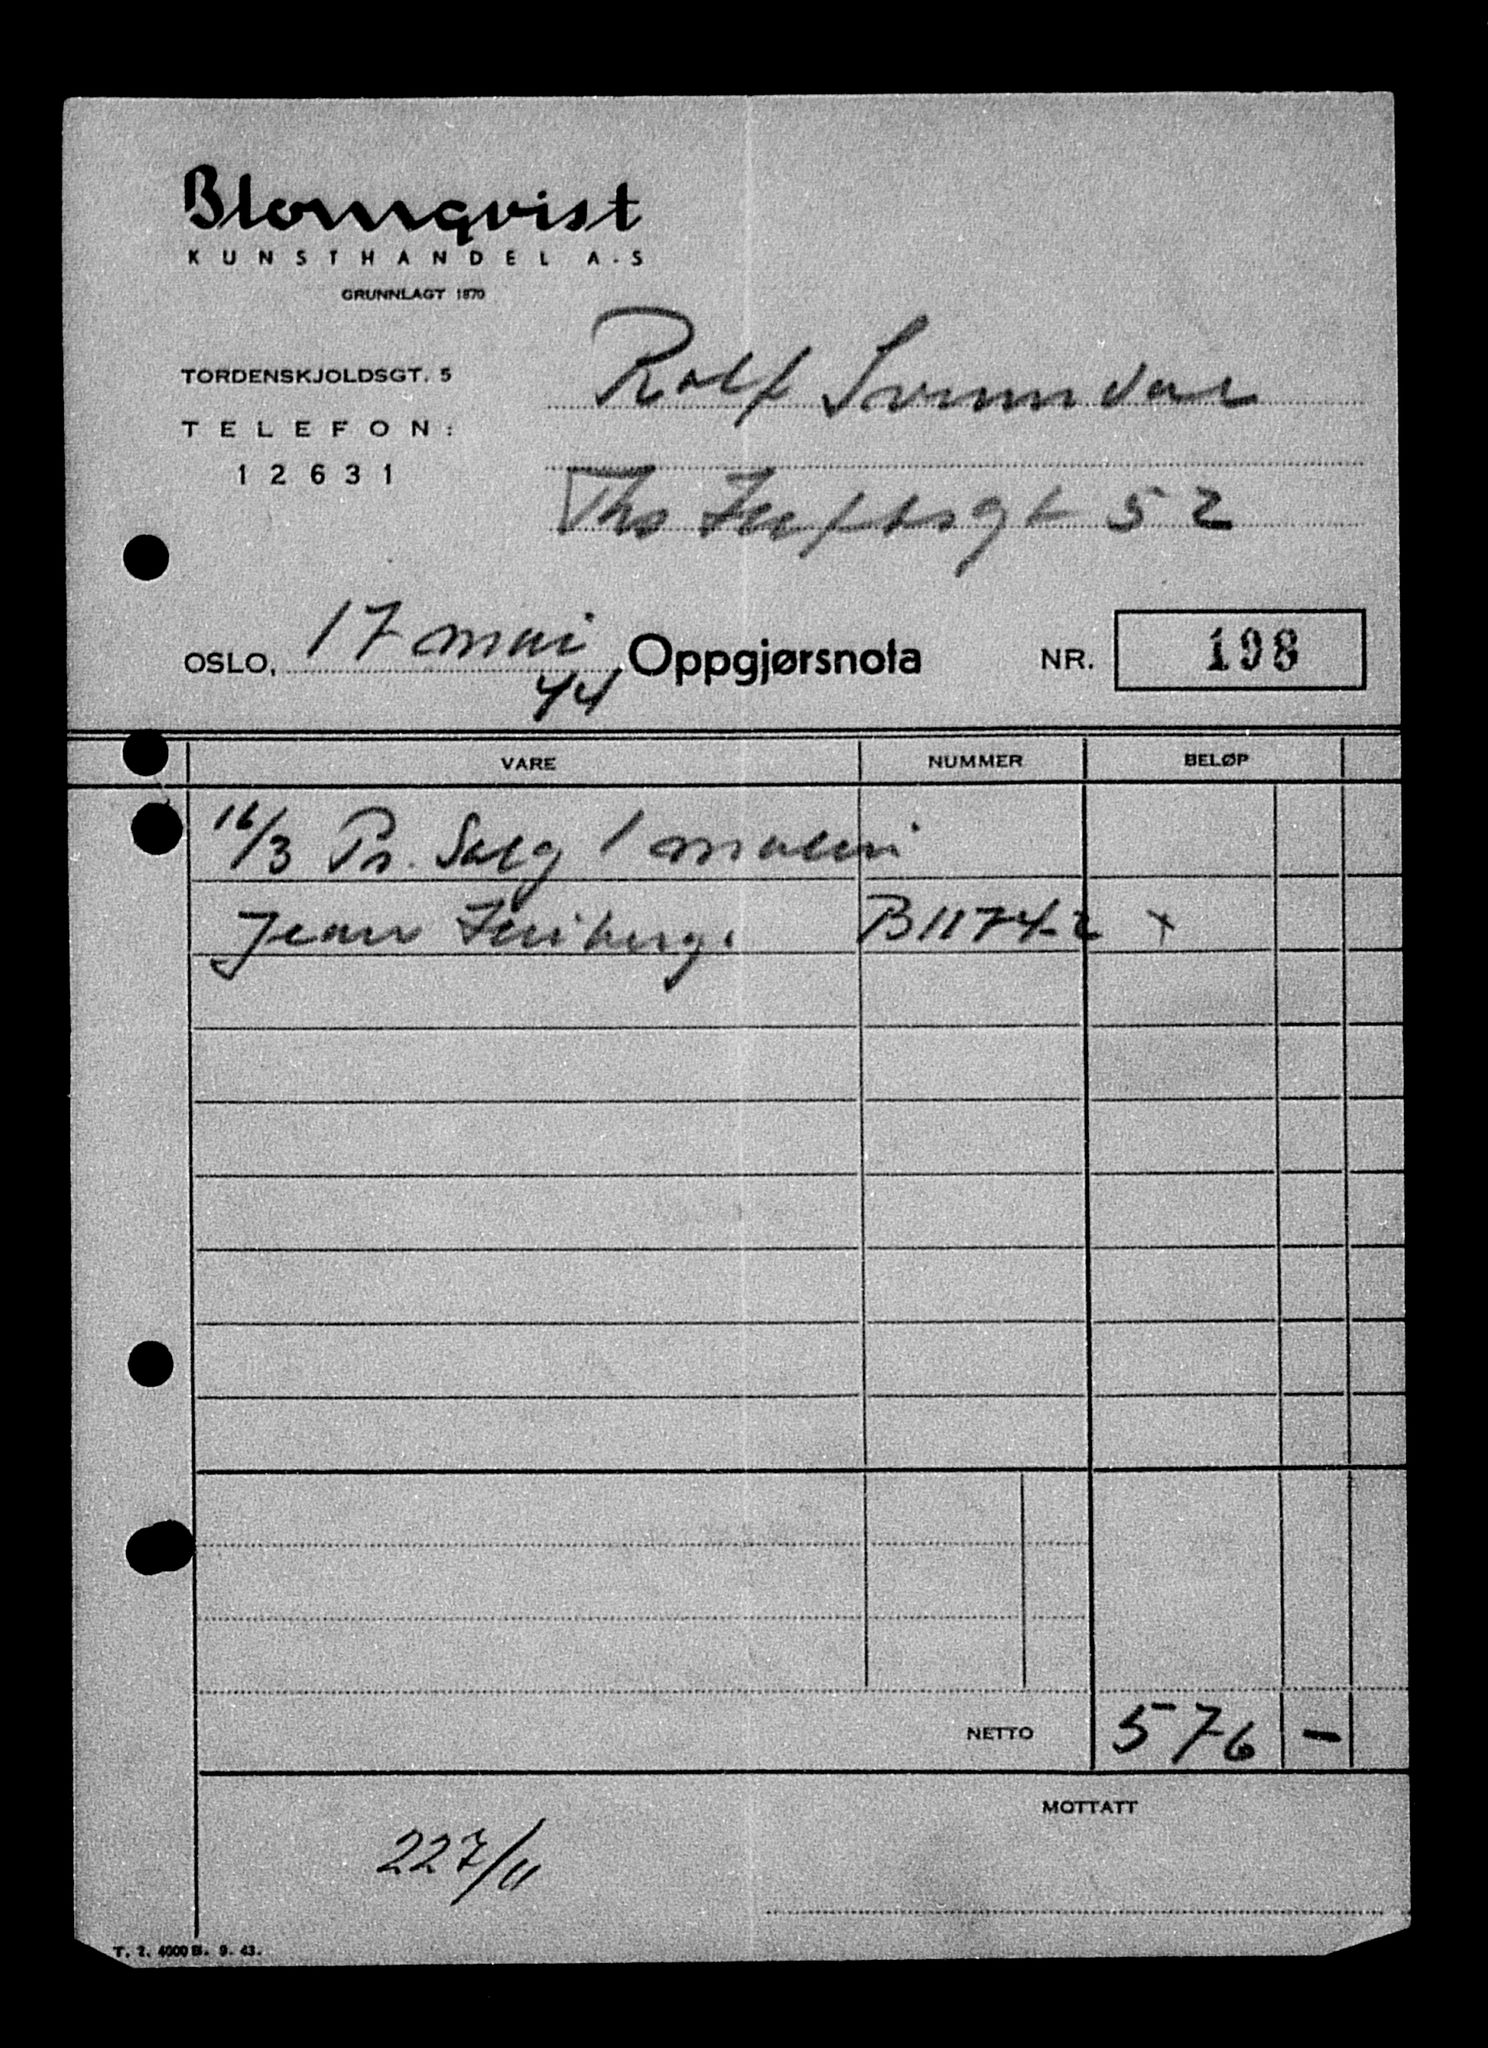 Blomqvist
KUNSTHANDEL A.S
GRUNNLAGT 1870
TORDENSKJOLDSGT. 5
TELEFON:
12631
Rolf
Ths Heftesgt 52
OSLO, 17 mai 44 Oppgjørsnota NR. 198
VARE NUMMER BELØP
16/3 Pr. Salg 1 maleri
Jean Heiberg. B11742 x
NETTO 576 -
MOTTATT
227/11
T. 2. 4000 B. 9. 43.